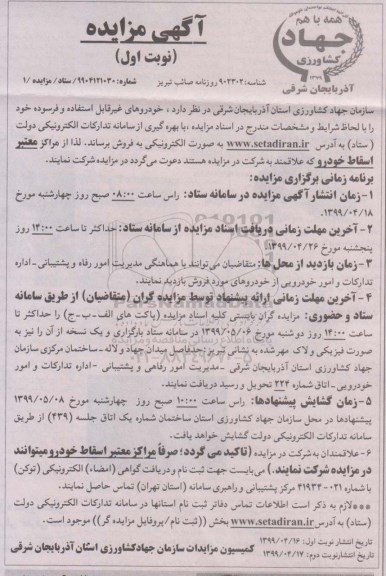 همه با هم
جهاد
کشاورزی
۱۳۷۹
آذربایجان شرقی
آگهی مزایده
(نوبت اول)
شناسه: ۹۰۲۳۰۲ روزنامه صائب تبریز
شماره: ۹۹۰۲۱۲۱۰۳۰/ ستاد/ مزایده /۱
سازمان جهاد کشاورزی استان آذربایجان شرقی در نظر دارد ، خودروهای غیرقابل استفاده و فرسوده خود
را با لحاظ شرایط و مشخصات مندرج در اسناد مزایده ،با بهره گیری از سامانه تدارکات الکترونیکی دولت
( ستاد) به آدرس www.setadiran.ir به صورت الکترونیکی به فروش برساند. لذا از مراکز معتبر
اسقاط خودرو که علاقمند به شرکت در مزایده هستند دعوت می گردد در مزایده شرکت نمایند.
برنامه زمانی برگزاری مزایده:
۱- زمان انتشار آگهی مزایده در سامانه ستاد: راس ساعت ۰۸:۰۰ صبح روز چهارشنبه مورخ
۱۳۹۹/۰۲/۱۸.
۲- آخرین مهلت زمانی دریافت اسناد مزایده از سامانه ستاد: حداکثر تا ساعت ۱۴:۰۰ روز
پنجشنبه مورخ ۱۳۹۹/۰۲/۲۶.
۳- زمان بازدید از محل ها: متقاضیان می توانند با هماهنگی مدیریت امور رفاه و پشتیبانی-اداره
تدارکات و امور خودرویی از خودروهای مورد فروش بازدید نمایند.
۴- آخرین مهلت زمانی ارائه پیشنهاد توسط مزایده گران (متقاضیان) از طریق سامانه
ستاد و حضوری: مزایده گران بایستی کلیه اسناد مزایده (پاکت های الف-ب-ج) را حداکثر تا
ساعت ۱۴:۰۰ روز دو شنبه مورخ ۱۳۹۹/۰۵/۰۶ در سامانه ستاد بارگزاری و یک نسخه از آن را نیز به
صورت فیزیکی و لاک مهر شده به نشانی تبریز:حدفاصل میدان جهاد و لاله -ساختمان مرکزی سازمان
جهاد کشاورزی استان آذربایجان شرقی -مدیریت امور رفاهی و پشتیبانی -اداره تدارکات و امور
خودرویی-اتاق شماره ۲۲۴ تحویل و رسید دریافت نمایند.
۵- زمان گشایش پیشنهادها: راس ساعت ۱۰:۰۰ صبح روز چهارشنبه مورخ ۱۳۹۹/۰۵/۰۸
پیشنهادها در محل سازمان جهاد کشاورزی استان ساختمان شماره یک اتاق جلسه (۲۳۹) از طریق
سامانه تدارکات الکترونیکی دولت گشایش خواهد یافت.
۶-علاقمندان به شرکت در مزایده (تاکید می گردد: صرفاً مراکز معتبر اسقاط خودرو میتوانند
در مزایده شرکت نمایند.) می بایست جهت ثبت نام و دریافت گواهی (امضاء) الکترونیکی (توکن)
با شماره ۰۲۱-۴۱۹۳۴ مرکز پشتیبانی و راهبری سامانه (استان تهران) تماس حاصل نمایند.
**لازم به ذکر است اطلاعات تماس دفاتر ثبت نام استانها در سامانه تدارکات الکترونیکی دولت
(ستاد) به آدرس www.setadiran.ir بخش ((ثبت نام/پروفایل مزایده گر)) موجود است.
تاریخ انتشار نوبت اول: ۱۳۹۹/۰۲/۱۶
تاریخ انتشار نوبت دوم: ۱۳۹۹/۰۲/۱۷
کمیسیون مزایدات سازمان جهاد کشاورزی استان آذربایجان شرقی